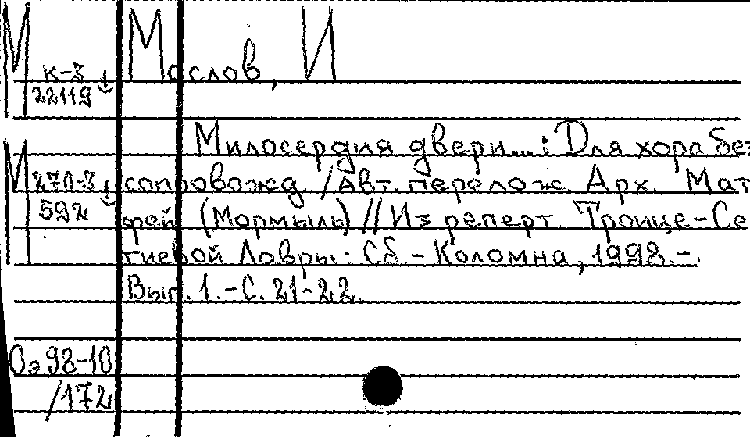 М Маслов, И
к-3
22119
Милосердия двери...: Для хора без
М 270-3 сопровожд /Авт. перелож. Арх. Мат
592 фей (Мормыль) // Из реперт. Троице-Се
гиевой Лавры: Сб. - Коломна, 1998. -
Вып. 1. - С. 21-22.
Оэ 98-10
/172